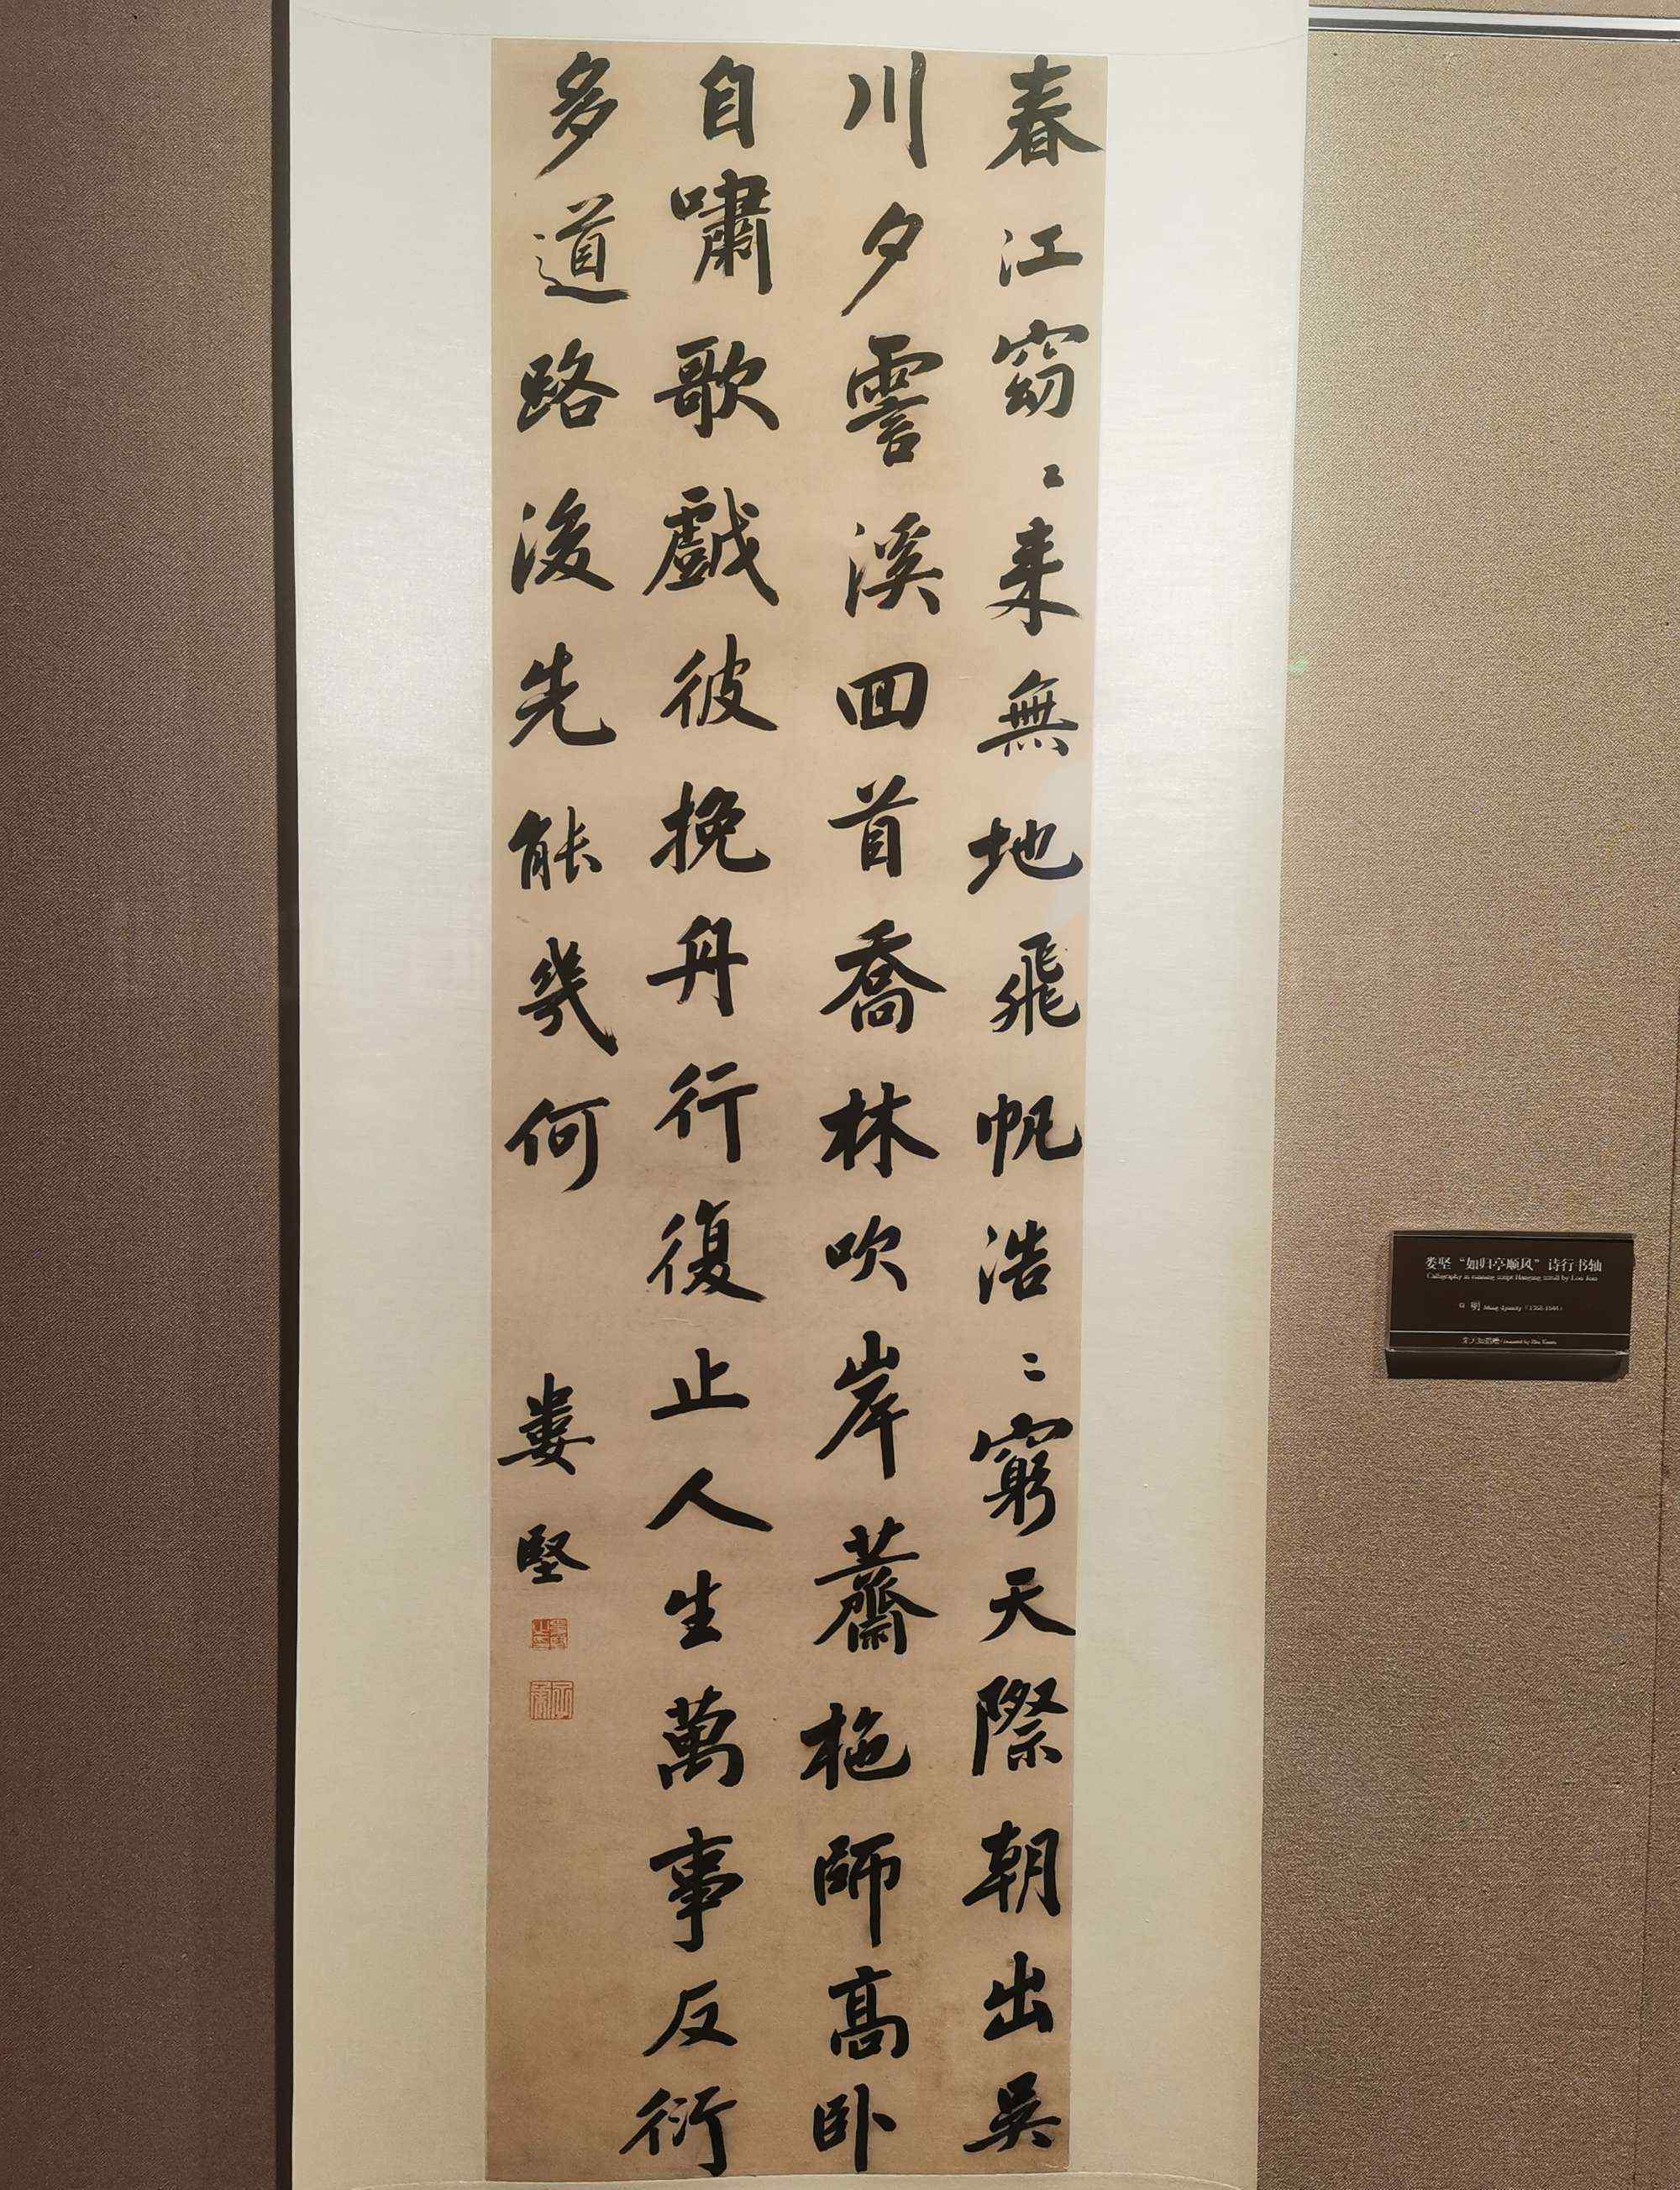 春江窈〻来無地飛帆浩〻窮天際朝出吳
川夕霅溪回首喬林吹岸薺柂師高卧
自嘯歌戲彼挽舟行復止人生萬事反衍
多道路後先能幾何
婁堅
娄坚“如归亭顺风”诗行书轴
Calligraphy in running script Hanging scroll by Lou Jian
明 Ming dynasty (1368-1644)